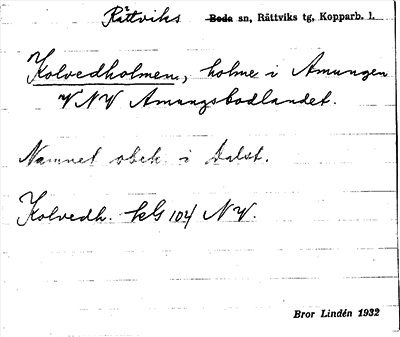 Rättviks Boda sn, Rättviks tg, Kopparb. l.
Kolvedholmen, holme i Amungen
VNV Amungsbodlandet.
Namnet obek. i dalst.
Kolvedh. kG 104 NV.
Bror Lindén 1932